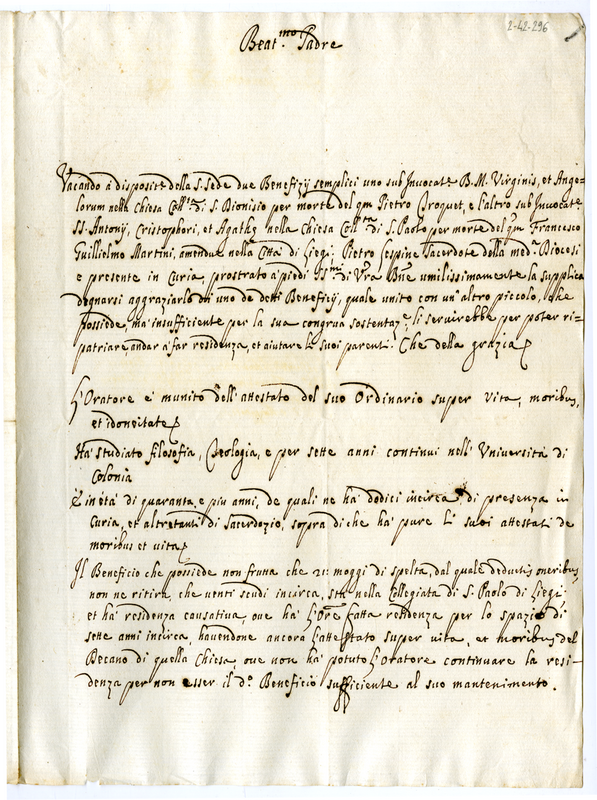 2-42-296
Beat.mo Padre
Vacando à dispositē della S. Sede due Benefizÿ semplici uno sub Invocatē B. M. Virginis, et Ange=
lorum nella Chiesa Coll.ta di S. Dionisio per morte del qm Pietro Croquet, e l'altro sub Invocatē
SS. Antonÿ, Cristophori, et Agathę nella Chiesa Coll.ta di S. Paolo per morte del qm Francesco
Guillielmo Martini, amendue nella Città di Liegi; Pietro Lespine Sacerdote della med.a Diocesi
e presente in Curia, prostrato à piedi SS.mi di Vr̄a Bn̄e umilissimamente la supplica
degnarsi aggraziarlo di uno de detti Beneficÿ, quale unito con un'altro piccolo, che
possiede, mà insufficiente per la sua congrua sostentaz.e, li servirebbe per poter ri=
patriare andar à far residenza, et aiutare li suoi parenti. Che della grazia
L'Oratore e' munito dell'attestato del suo Ordinario super vita, moribus,
et idoneitate
Hà studiato filosofia, Teologia, e per sette anni continui nell'Università di
Colonia
È in età di quaranta e più anni, de quali ne hà dodici incirca di presenza in
Curia, et altretanti di Sacerdozio, sopra di che hà pure li suoi attestati de
moribus et vita
Il Beneficio che possiede non frutta che 21: moggi di spelta, dal quale deductis oneribus
non ne ritira, che venti scudi incirca, stà nella Collegiata di S. Paolo di Liegi;
et hà residenza causativa, ove hà l'Ōre fatta residenza per lo spazio di
sette anni incirca, havendone ancora l'attestato super vita, et moribus del
Decano di quella Chiesa, ove non hà potuto l'Oratore continuare la resi-
denza per non esser il d.o Beneficio sufficiente al suo mantenimento.